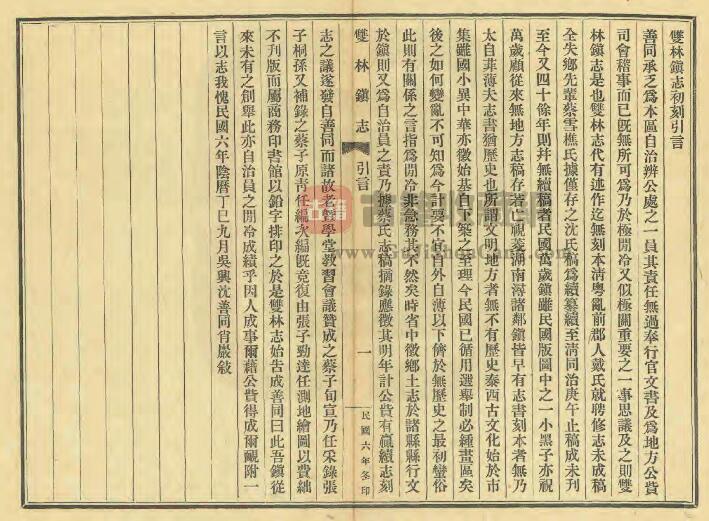 雙林鎮志初刻引言
善同承乏爲本區自治辦公處之一員其責任無過奉行官文書及爲地方公費
司會稽事而已旣無所可爲乃於極閒冷又似極關重要之一事思議及之則雙
林鎮志是也雙林志代有述作迄無刻本清粵亂前郡人戴氏就聘修志未成稿
全失鄉先輩蔡雪樵氏據僅存之沈氏稿爲續纂續至清同治庚午止稿成未刊
至今又四十餘年則幷無續稿者民國萬歲鎮雖民國版圖中之一小黑子亦祝
萬歲顧從來無地方志稿存若亡視菱湖南潯諸鄰鎮皆早有志書刻本者無乃
太自菲薄夫志書猶歷史也所謂文明地方者無不有歷史泰西古文化始於市
集雖國小異中華亦徵始基自下築之至理今民國已循用選舉制必種畫區矣
後之如何變亂不可知爲今計要不宜自外自薄以下儕於無歷史之最初蠻俗
此則有關係之言指爲閒冷非急務其不然矣時省中徵鄉土志於諸縣縣行文
於鎮則又爲自治員之責乃據蔡氏志稿摘錄應徵其明年計公費有贏續志刻
雙林鎮志
引言
一
民國六年冬印
志之議遂發自善同而諸故老曁學堂教習會議贊成之蔡子旬宣乃任采錄張
子桐孫又補錄之蔡子原青任編次編旣竟復由張子勁達任測地繪圖以費絀
不刋版而屬商務印書館以鉛字排印之於是雙林志始告成善同曰此吾鎮從
來未有之創舉此亦自治員之閒冷成績乎因人成事爾藉公貲得成爾靦附一
言以志我愧民國六年陰曆丁巳九月吳興沈善同肖巖敍
古籍
www.GuJiShuCang.com